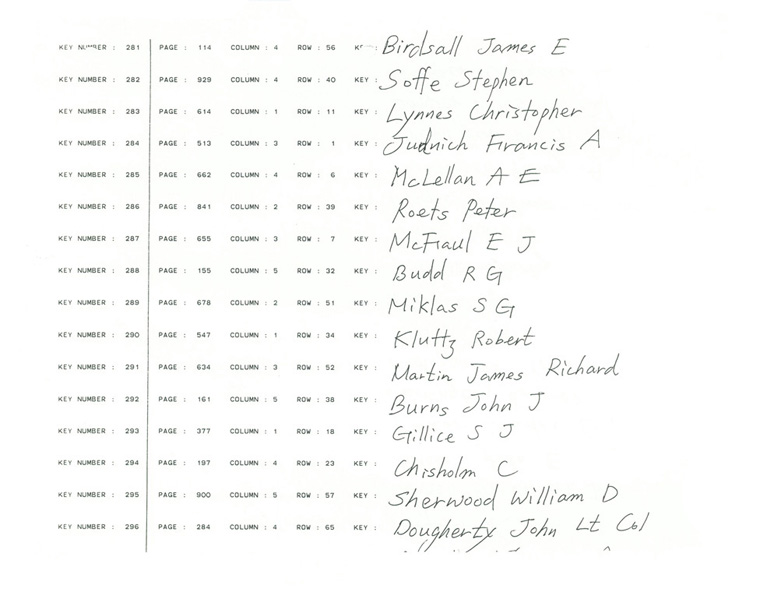 KEY NUMBER : 281 PAGE : 114 COLUMN : 4 ROW : 56 KEY : Birdsall James E
KEY NUMBER : 282 PAGE : 929 COLUMN : 4 ROW : 40 KEY : Soffe Stephen
KEY NUMBER : 283 PAGE : 614 COLUMN : 1 ROW : 11 KEY : Lynnes Christopher
KEY NUMBER : 284 PAGE : 513 COLUMN : 3 ROW : 1 KEY : Judnich Francis A
KEY NUMBER : 285 PAGE : 662 COLUMN : 4 ROW : 6 KEY : McLellan A E
KEY NUMBER : 286 PAGE : 841 COLUMN : 2 ROW : 39 KEY : Roets Peter
KEY NUMBER : 287 PAGE : 655 COLUMN : 3 ROW : 7 KEY : McFraul E J
KEY NUMBER : 288 PAGE : 155 COLUMN : 5 ROW : 32 KEY : Budd R G
KEY NUMBER : 289 PAGE : 678 COLUMN : 2 ROW : 51 KEY : Miklas S G
KEY NUMBER : 290 PAGE : 547 COLUMN : 1 ROW : 34 KEY : Kluttz Robert
KEY NUMBER : 291 PAGE : 634 COLUMN : 3 ROW : 52 KEY : Martin James Richard
KEY NUMBER : 292 PAGE : 161 COLUMN : 5 ROW : 38 KEY : Burns John J
KEY NUMBER : 293 PAGE : 377 COLUMN : 1 ROW : 18 KEY : Gillice S J
KEY NUMBER : 294 PAGE : 197 COLUMN : 4 ROW : 23 KEY : Chisholm C
KEY NUMBER : 295 PAGE : 900 COLUMN : 5 ROW : 57 KEY : Sherwood William D
KEY NUMBER : 296 PAGE : 284 COLUMN : 4 ROW : 65 KEY : Dougherty John Lt Col